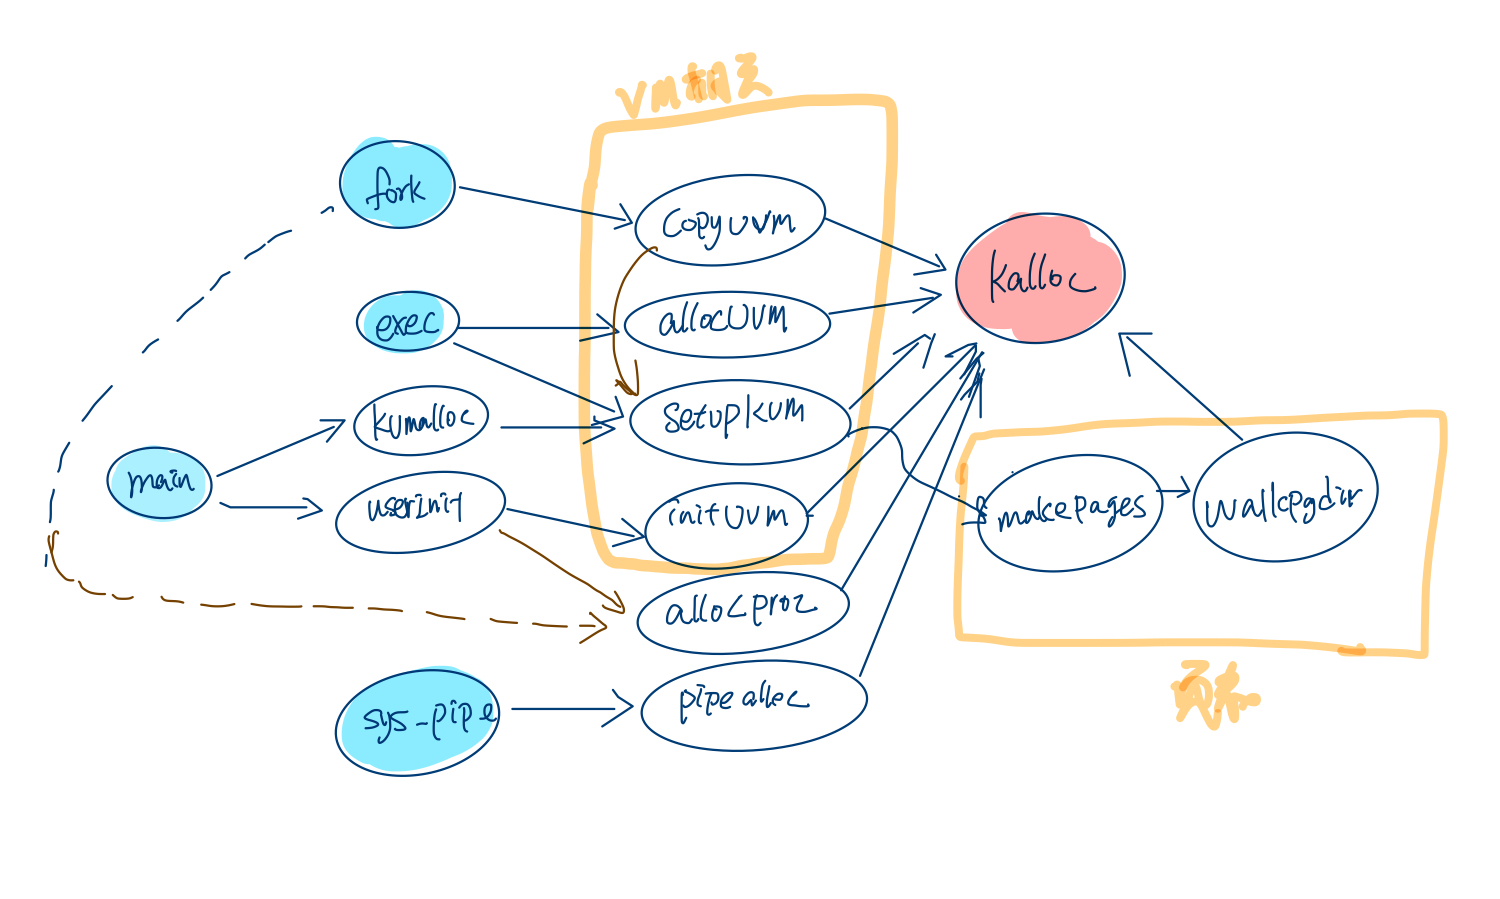 VM相关
fork
copyuvm
kalloc
exec
allocuvm
kvmalloc
setupkvm
main
userinit
initUvm
makepages
walkpgdir
allocproc
sys_pipe
pipealloc
页表